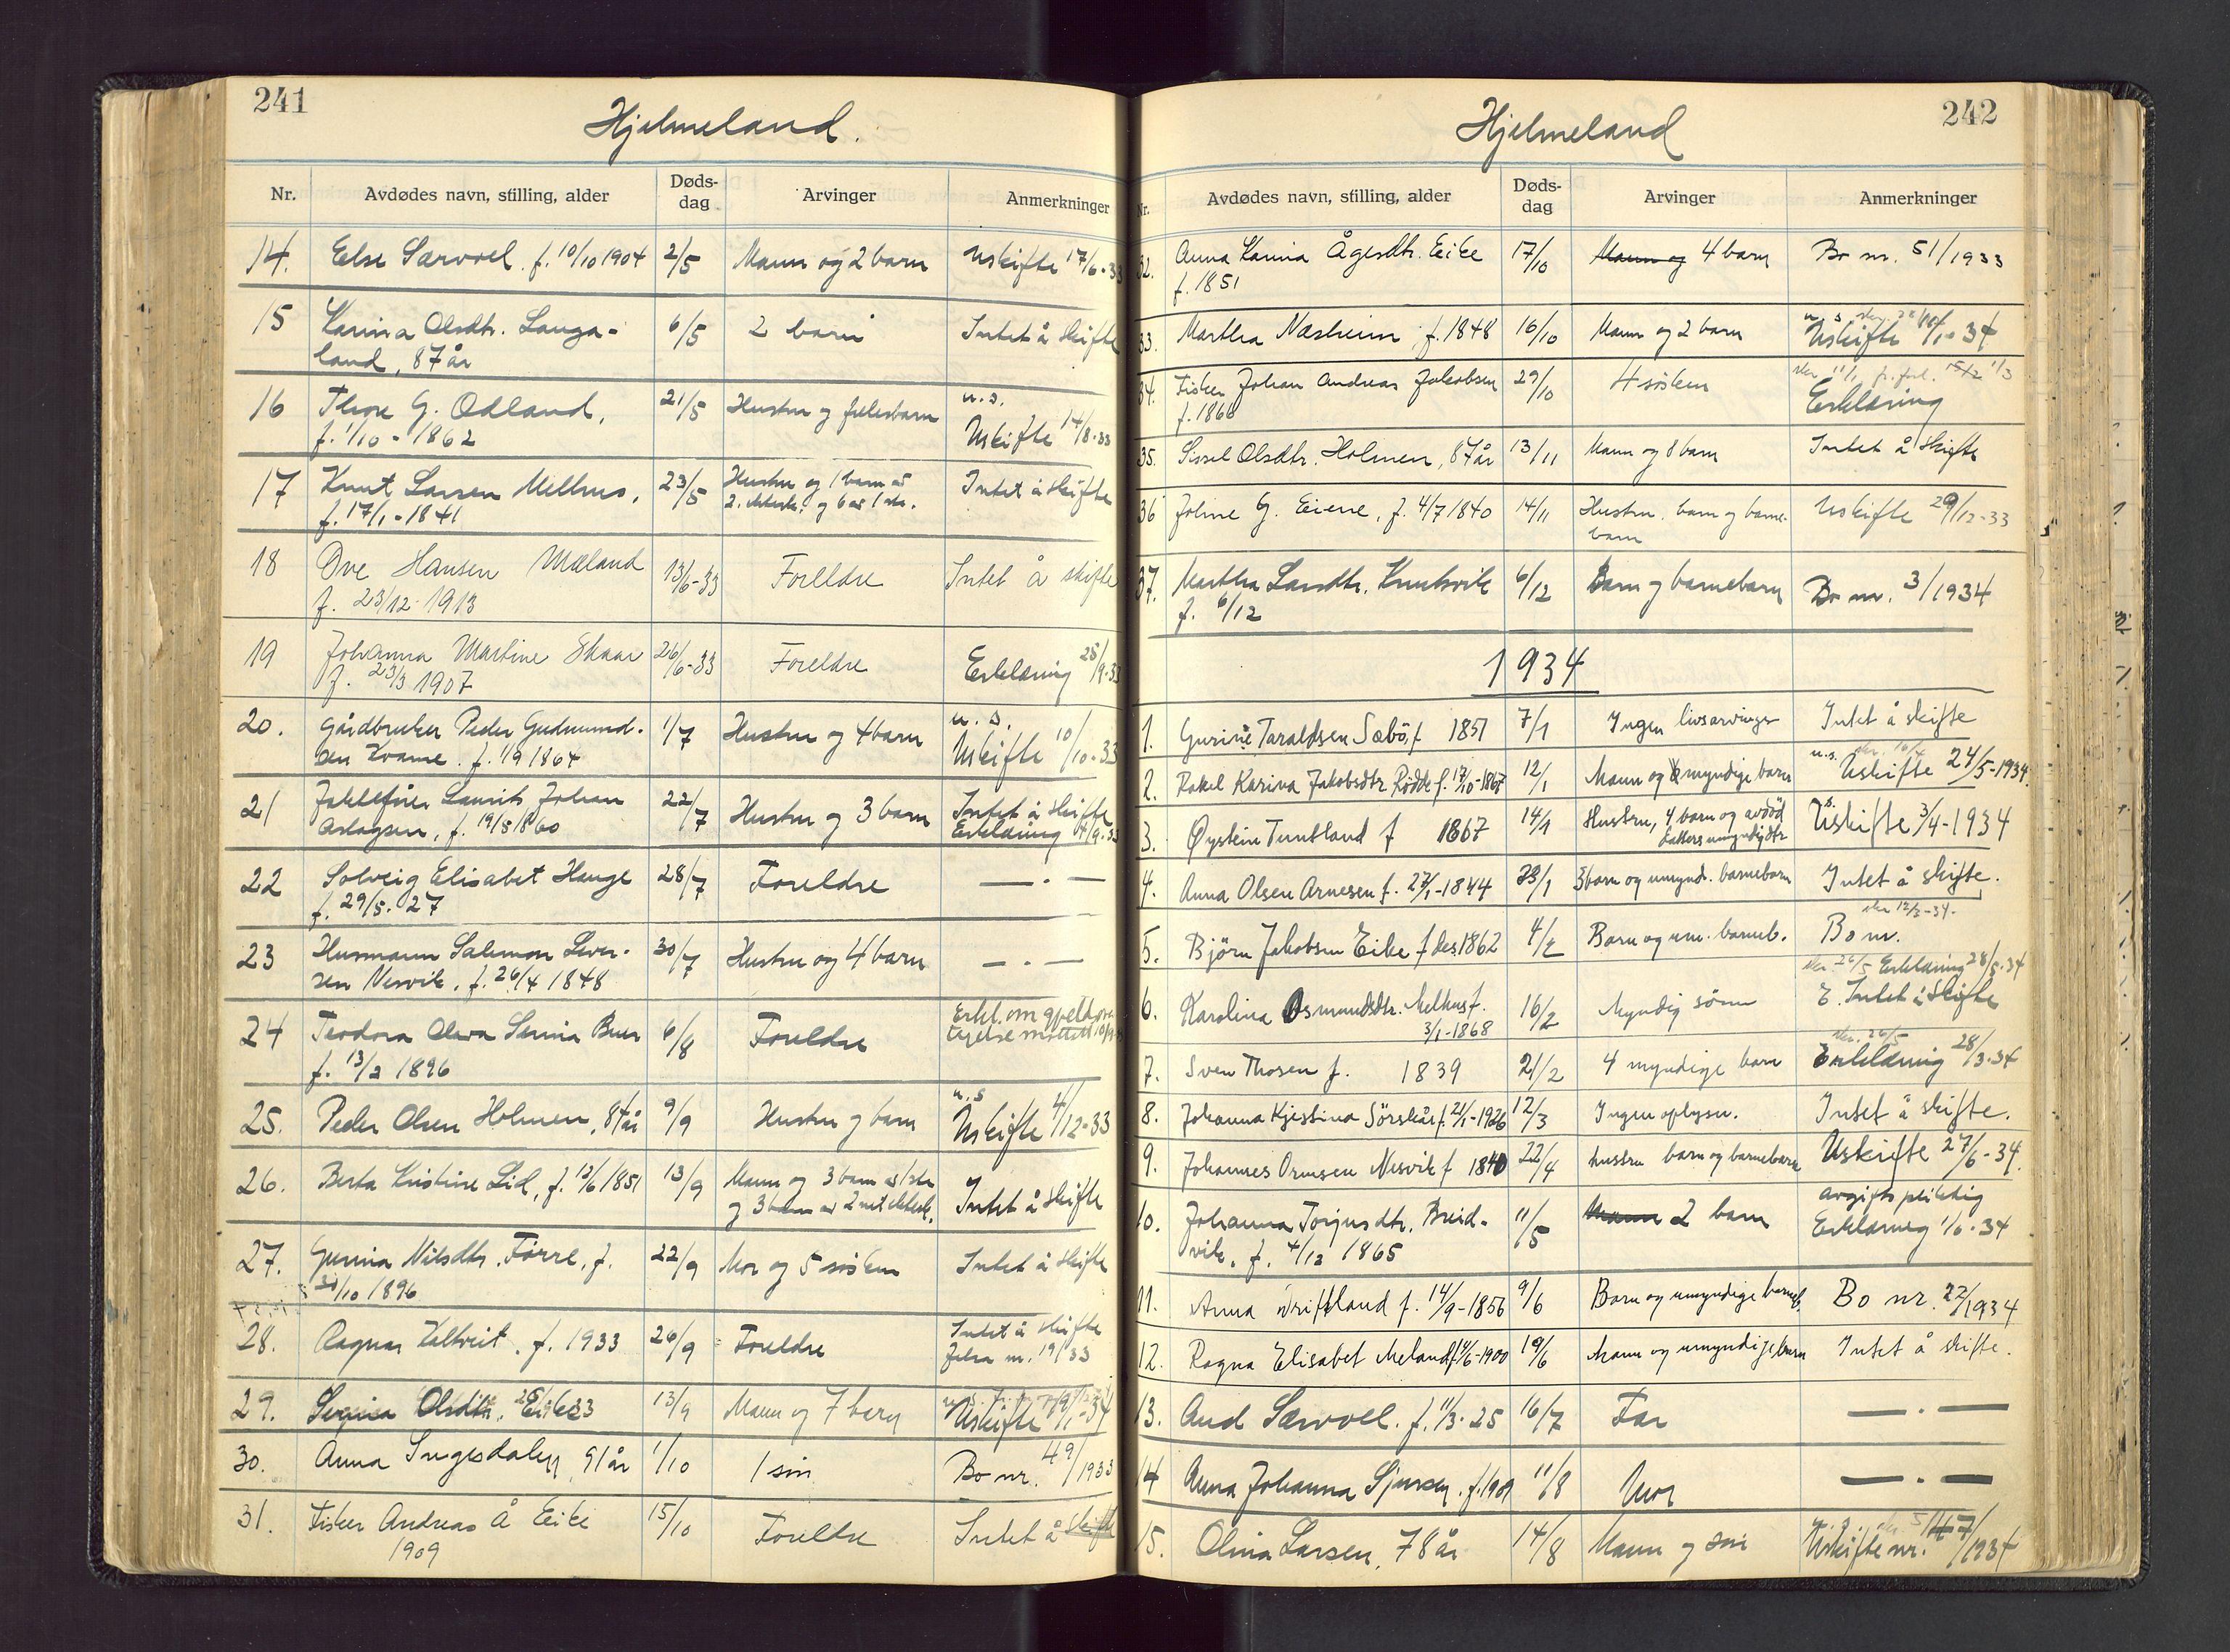 241
Hjelmeland.
Nr. Avdødes navn, stilling, alder Døds-dag Arvinger Anmerkninger
14. Else Sarvoel. f. 10/10 1904 2/5 Mann og 2 barn Uskifte 17/6-33
15 Karina Olsdtr. Langa- 6/5 2 barn Intet å skifte
land, 87 år
16 G. Odland, 21/5 Hustru og fellesbarn u.s.
f. 1/10-1862 Uskifte 14/8-33
17 Knut Larsen Melhus, 23/5 Hustru og 1 barn av Intet å skifte
f. 17/1-1841 2. og 6 av 1 ekt.
18 Ove Hansen Mæland 13/6-33 Foreldre Intet å skifte
f. 23/12 1913
19 Johanna Martine Skaar 26/6-33 Foreldre Erklæring 25/9-33
f. 23/3 1907
20. Gårdbruker Peder Gudmund- 1/7 Hustru og 4 barn u.s.
sen Kvame. f. 1/9 1864 Uskifte 10/10-33
21 Laurits Johan 22/7 Hustru og 3 barn Intet å skifte
Aslagsen, f. 19/5 1860 Erklæring 14/9-33
22 Solveig Elisabet Hauge 28/7 Foreldre — · —
f. 29/5-27
23 Husmann Salemon Siver- 30/7 Hustru og 4 barn — · —
sen Nesvik, f. 26/4 1848
24 Teodora Olava Serina Buer 6/8 Foreldre Erkl. om gjeldsover-
f. 13/2 1896 tagelse mottatt
25. Peder Olsen Holmen, 84 år 9/9 Hustru og barn u.s
Uskifte 4/12-33
26. Berta Kristine Lid, f. 12/6 1851 13/9 Mann og 3 barn av 1 ekt. Intet å skifte
og 3 barn av 2net ektesk.
27. Gurina Nilsdtr. Førre, f. 22/9 Mor og 5 søsken Intet å skifte
30/10 1896
28. Ragnar Kaltveit. f. 1933 26/9 Foreldre Intet å skifte
19/33
29. Serina Olsdtr. Eike 13/9 Mann og 7 barn Uskifte
30. Anna Ingesdalen, 91 år 1/10 1 søn Bo nr. 49/1933
31. Fisker Andreas Å Eike 15/10 Foreldre Intet å skifte
1909
242
Hjelmeland
Nr. Avdødes navn, stilling, alder Døds-dag Arvinger Anmerkninger
32. Anna Karina Ågesdtr. Eike 17/10 Mann og 4 barn Bo nr. 51/1933
f. 1851
33. Martha Næsheim f. 1848 16/10 Mann og 2 barn u.s
Uskifte 11/1-34
34. Fisker Johan Andreas Jakobsen 29/10 4 søsken
f. 1866 Erklæring
35. Sissel Olsdtr. Holmen, 87 år 13/11 Mann og 8 barn Intet å skifte
36 Johne G. Eiene, f. 4/7 1840 14/11 Hustru. barn og barne- Uskifte 29/12-33
barn
37. Martha Larsdtr. Knutsvik 6/12 Barn og barnebarn Bo nr. 3/1934
f. 6/12
1934
1. Gurine Taraldsen Sæbö, f 1851 7/1 Ingen livsarvinger Intet å skifte
2. Rakel Karina Jakobsdtr Rödde f. 17/10-1867 12/1 Mann og myndige barn u.s. Uskifte 24/5-1934
3. Øystein Tuntland f 1867 14/1 Hustru, 4 barn og avdöd Uskifte 3/4-1934
datters umyndig dtr
4. Anna Olsen Arnesen f. 27/1-1844 23/1 3 barn og umynd. barnebarn Intet å skifte.
5. Björn Jakobsen Eike f des 1862 4/2 Barn og um. barneb. Bo nr.
Erklæring 28/5-34
6. Karolina Osmundsdtr. Melhus f. 16/2 Myndig sönn E. Intet å skifte
3/1-1868
7. Sven Thosen f. 1839 21/2 4 myndige barn Erklæring 28/3-34
8. Johanna Kjestina Sörskår f. 21/1-1926 12/3 Ingen oplysn. Intet å skifte.
9. Johannes Ormsen Nesvik f 1840 22/4 hustru barn og barnebarn Uskifte 27/6-34.
10. Johanna Torjusdtr. Breid- 11/5 Mann 2 barn avgiftspliktig
vik, f. 4/12 1865 Erklæring 1/6-34
11. Anna Driftland f. 14/9-1856 9/6 Barn og umyndige barneb. Bo nr. 22/1934
12. Ragna Elisabet Meland f 14/6-1900 19/6 Mann og umyndige barn Intet å skifte.
13. Aud Sarvoel. f. 11/3-25 16/7 Far — · —
14 Anna Johanna Sjursen. f. 1909 11/8 Mor — · —
15. Olina Larsen, 78 år 14/8 Mann og søn Uskifte nr. 47/1934